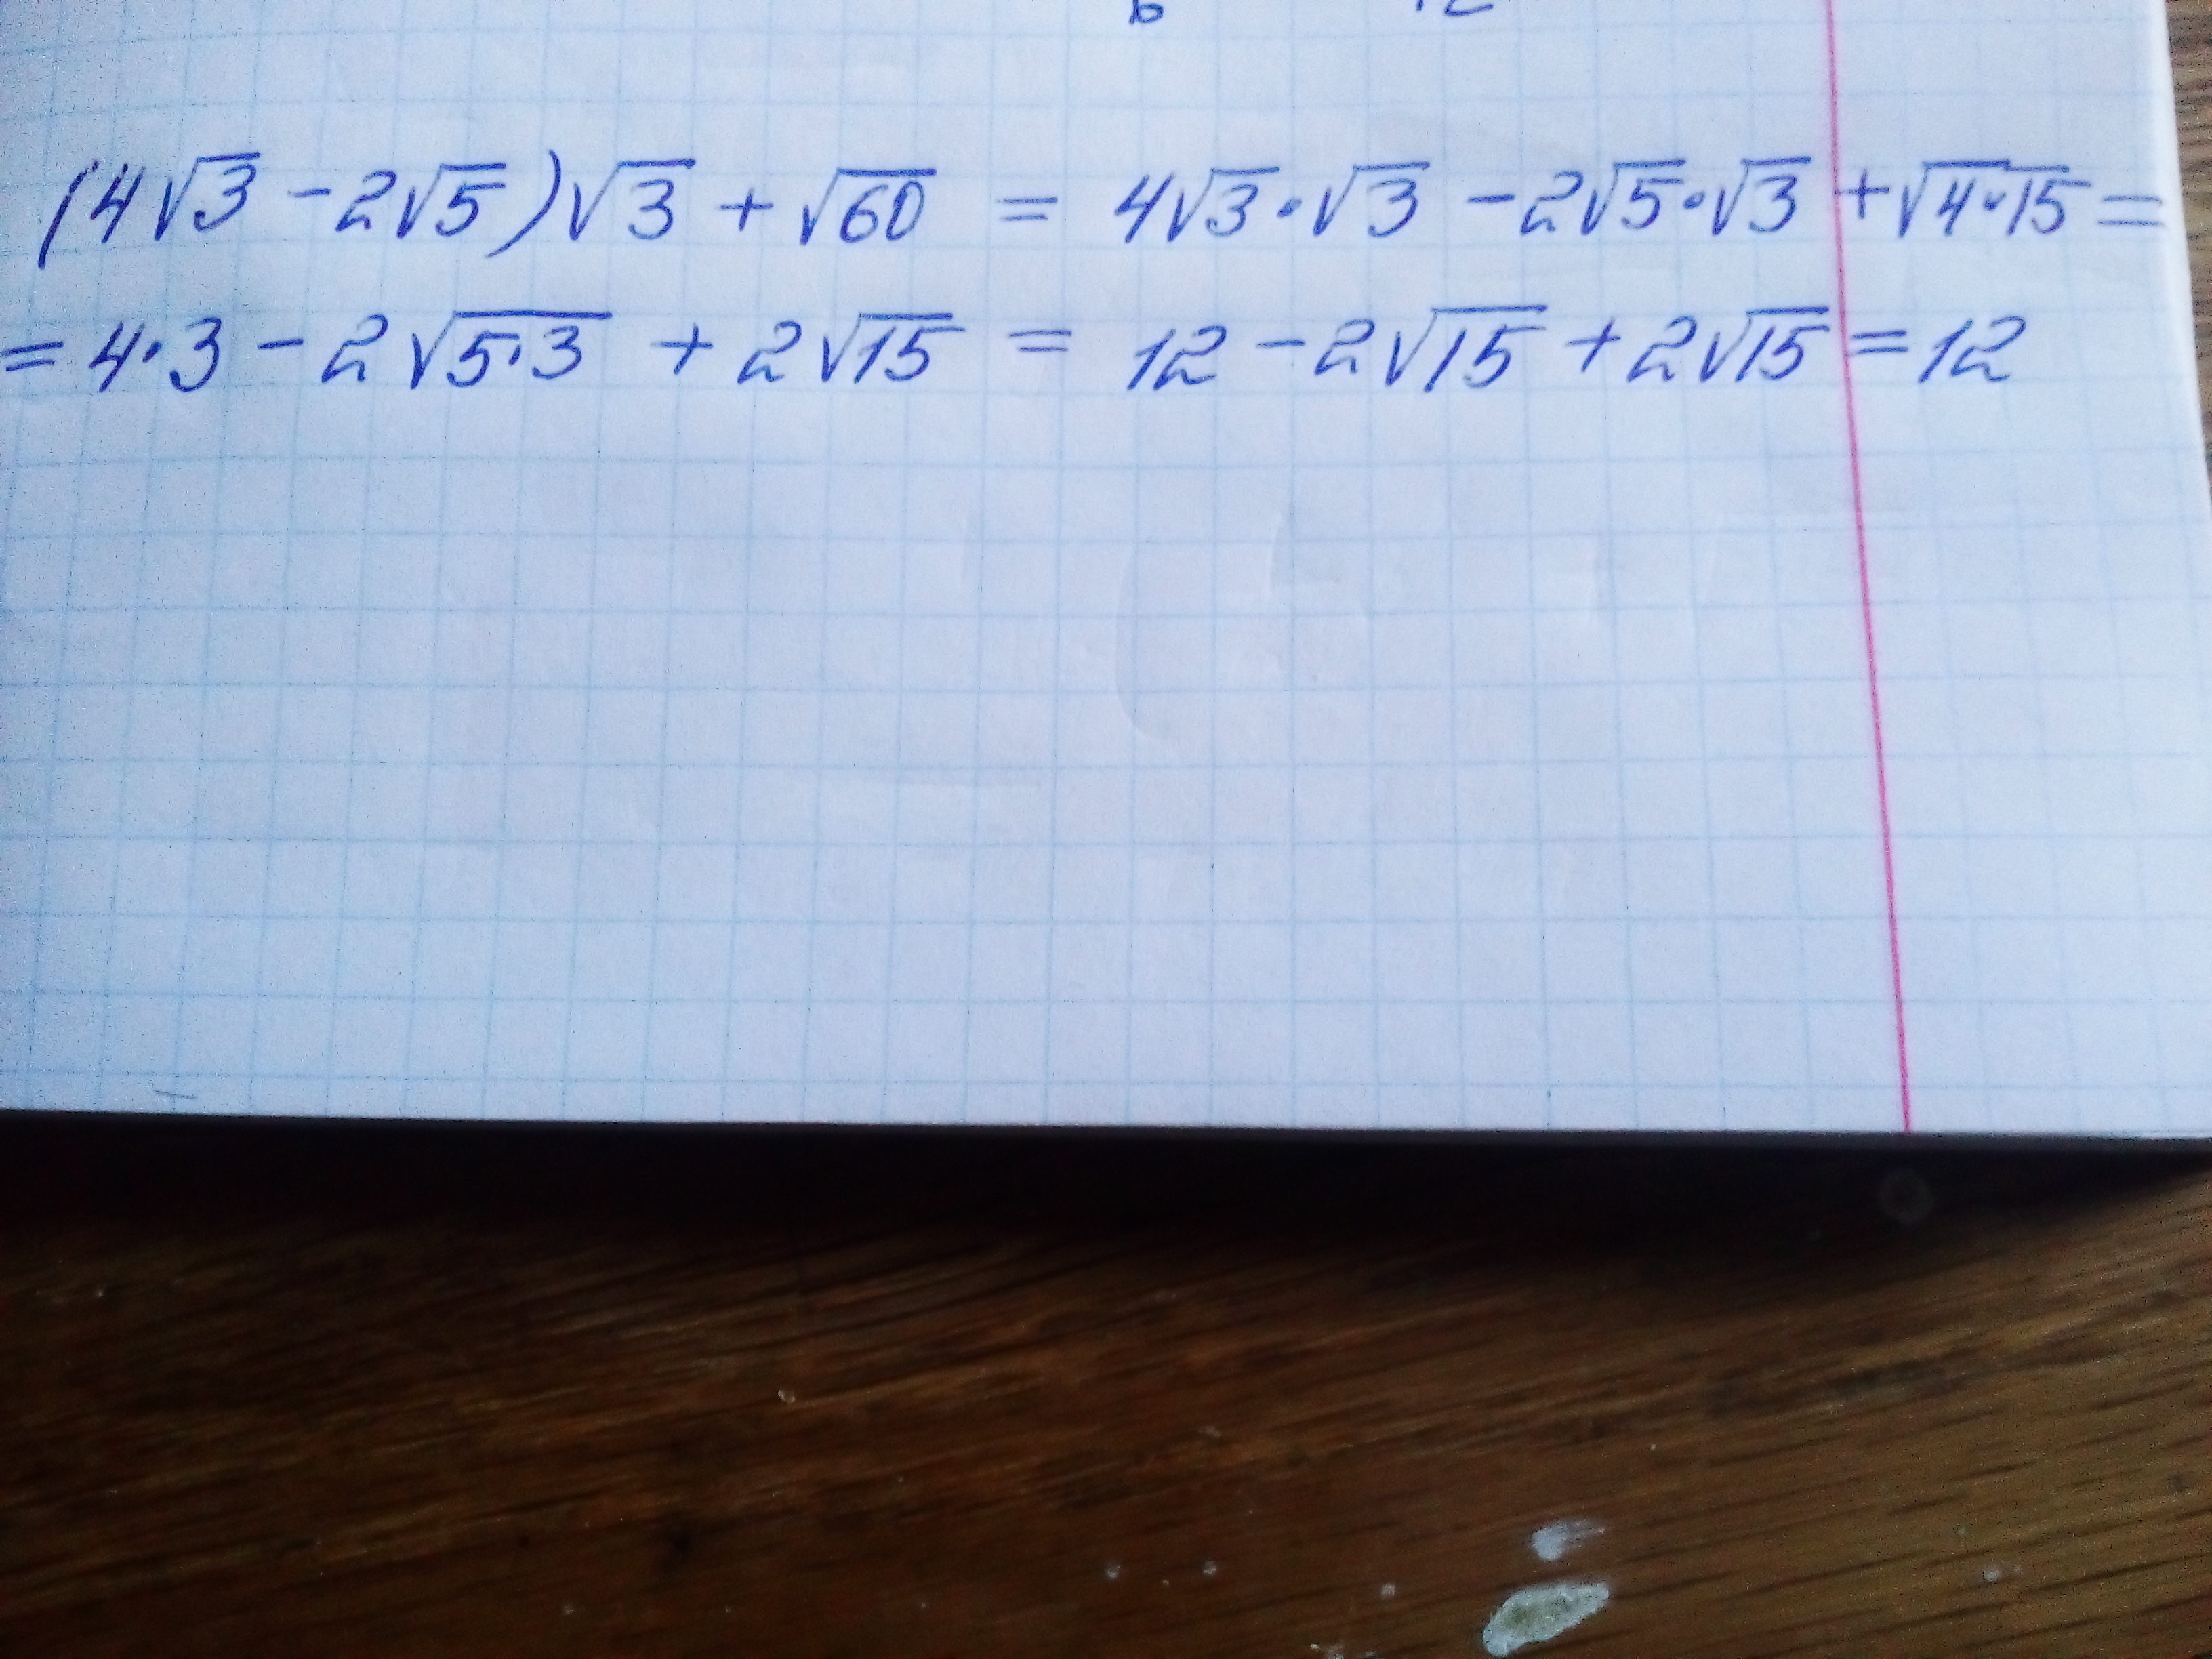 (4√3 - 2√5)√3 + √60 = 4√3·√3 - 2√5·√3 + √4·15 =
= 4·3 - 2√5·3 + 2√15 = 12 - 2√15 + 2√15 = 12